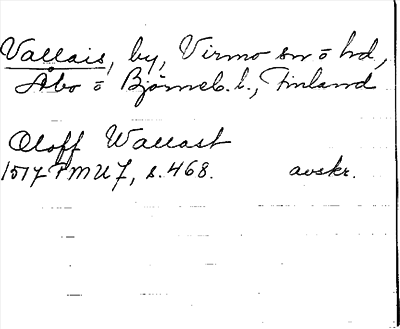 Vallais, by, Virmo sn o hd,
Åbo o Björneb. l., Finland
Oloff Wallast
1517 FMU 7, s. 468. avskr.